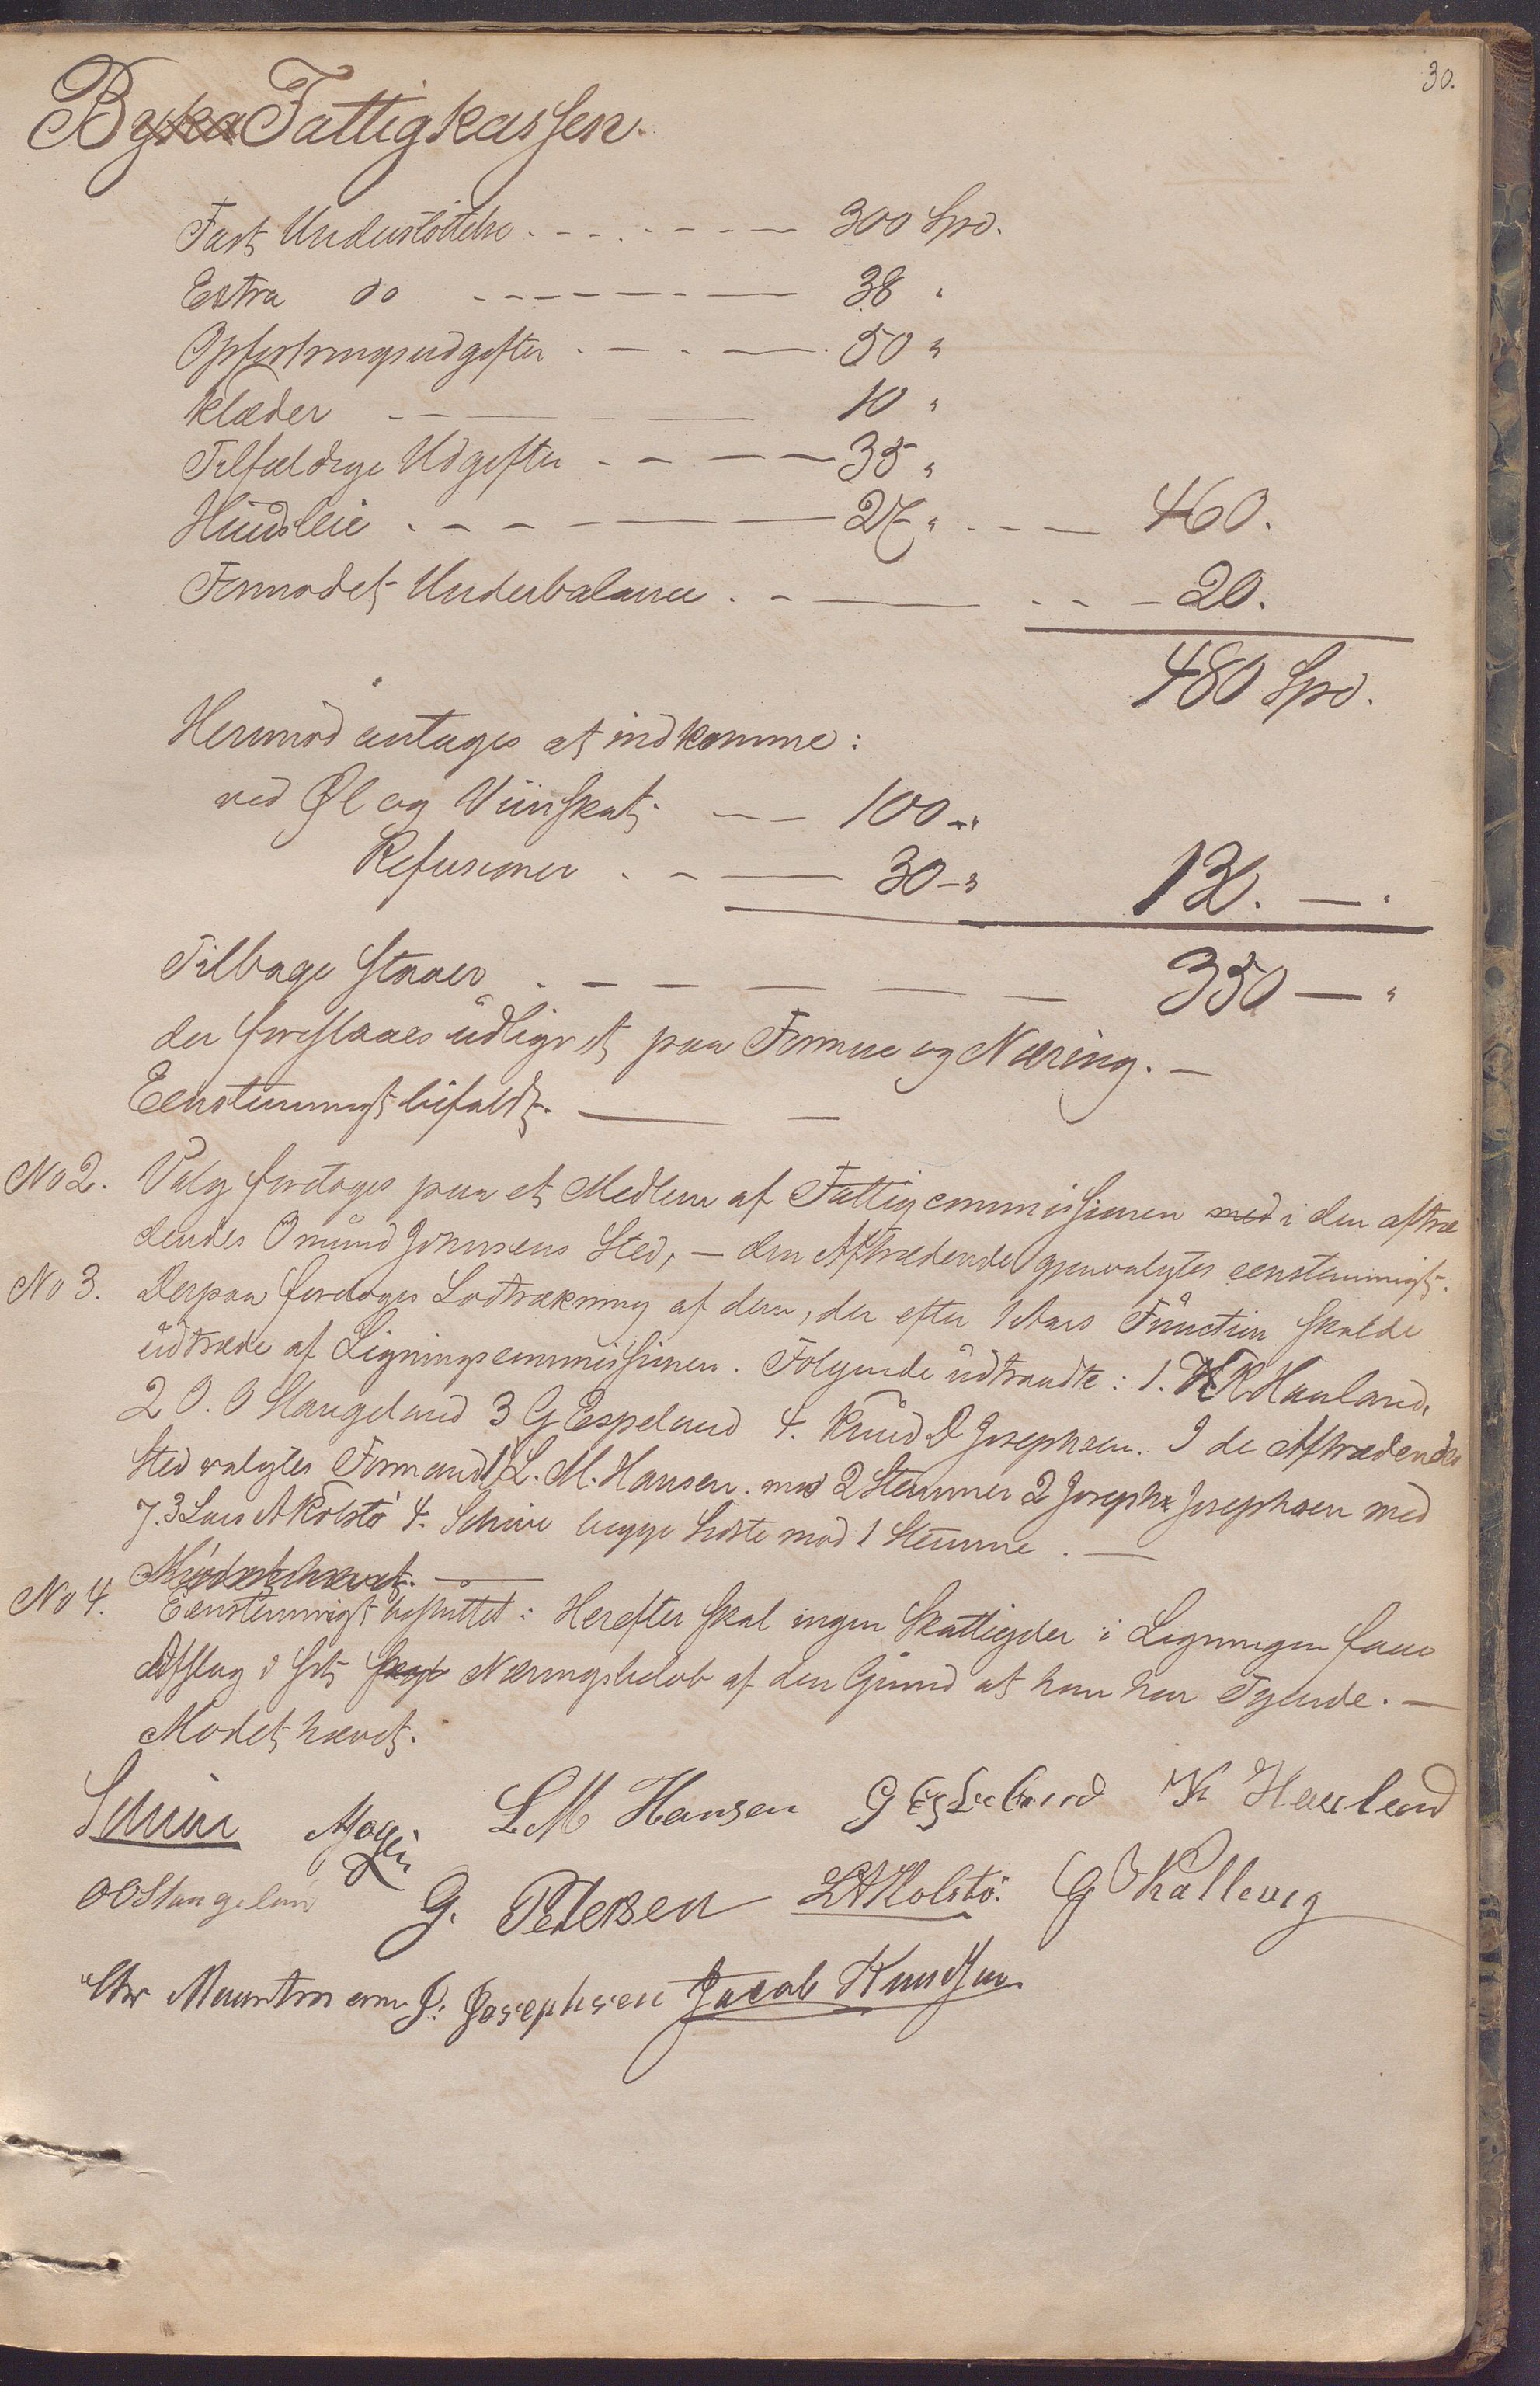 30.
Byka Fattigkassen.
Fast Understöttelse 300 Spd.
Extra do 38 "
Opfostringsudgifter 50 "
Klæder 10 "
Tilfældige Udgifter 35 "
Huusleie 27 " 460.
Formodet Underbalance 20.
480 Spd.
Herimod antages at indkomme:
ved Øl og Viinskat 100 "
Refusioner 30 " 130. — "
Tilbage Staaer 350 — "
der foreslaaes udlignet paa Formue og Næring. —
Eenstemmigt bifaldt. —
No 2. Valg foretoges paa et Medlem af Fattigcommissionen med i den aftræ
dendes Omund Johnsens Sted, — den Aftrædende gjenvalgtes eenstemmigt.
No 3. Derpaa foretoges Lodtrækning af dem, der efter 1 Aars Function skulde
udtræde af Ligningscommissionen. Følgende udtraadte: 1. K Hauland,
2 O. O Stangeland 3 G Espeland 4. Knud D Josephsen. I de Aftrædendes
Sted valgtes Formand 1 L. M. Hansen. med 2 Stemmer 2 Joseph Josephsen med
7. 3 Lars A Kolstö 4. Schiøe begge sidste med 1 Stemme. —
Mödet hævet. —
No 4. Eenstemmigt besluttet: Herefter skal ingen Skatteyder i Ligningen faae
Afslag i sit Næringsbelöb af den Grund at han har Tyende. —
Mödet hævet.
L M Hansen G Espeland K Hauland
O O Stangeland G. Petersen L A Kolstö. G Kallevig
J. Josephsen Jacob Knudsen